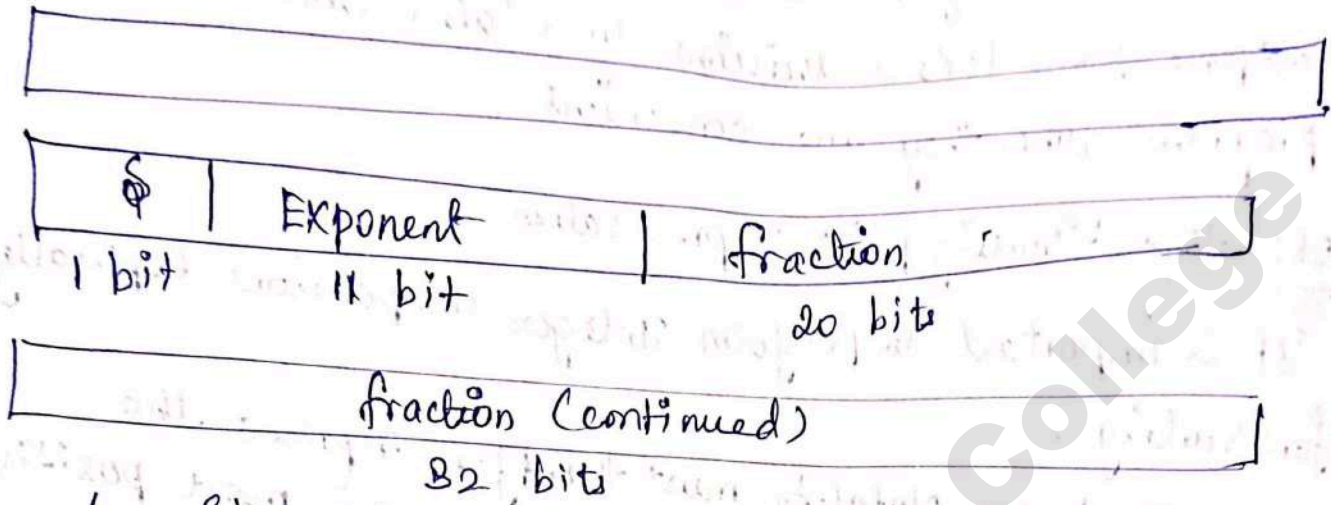 S Exponent fraction
1 bit 11 bit 20 bits
fraction (continued)
32 bits
College